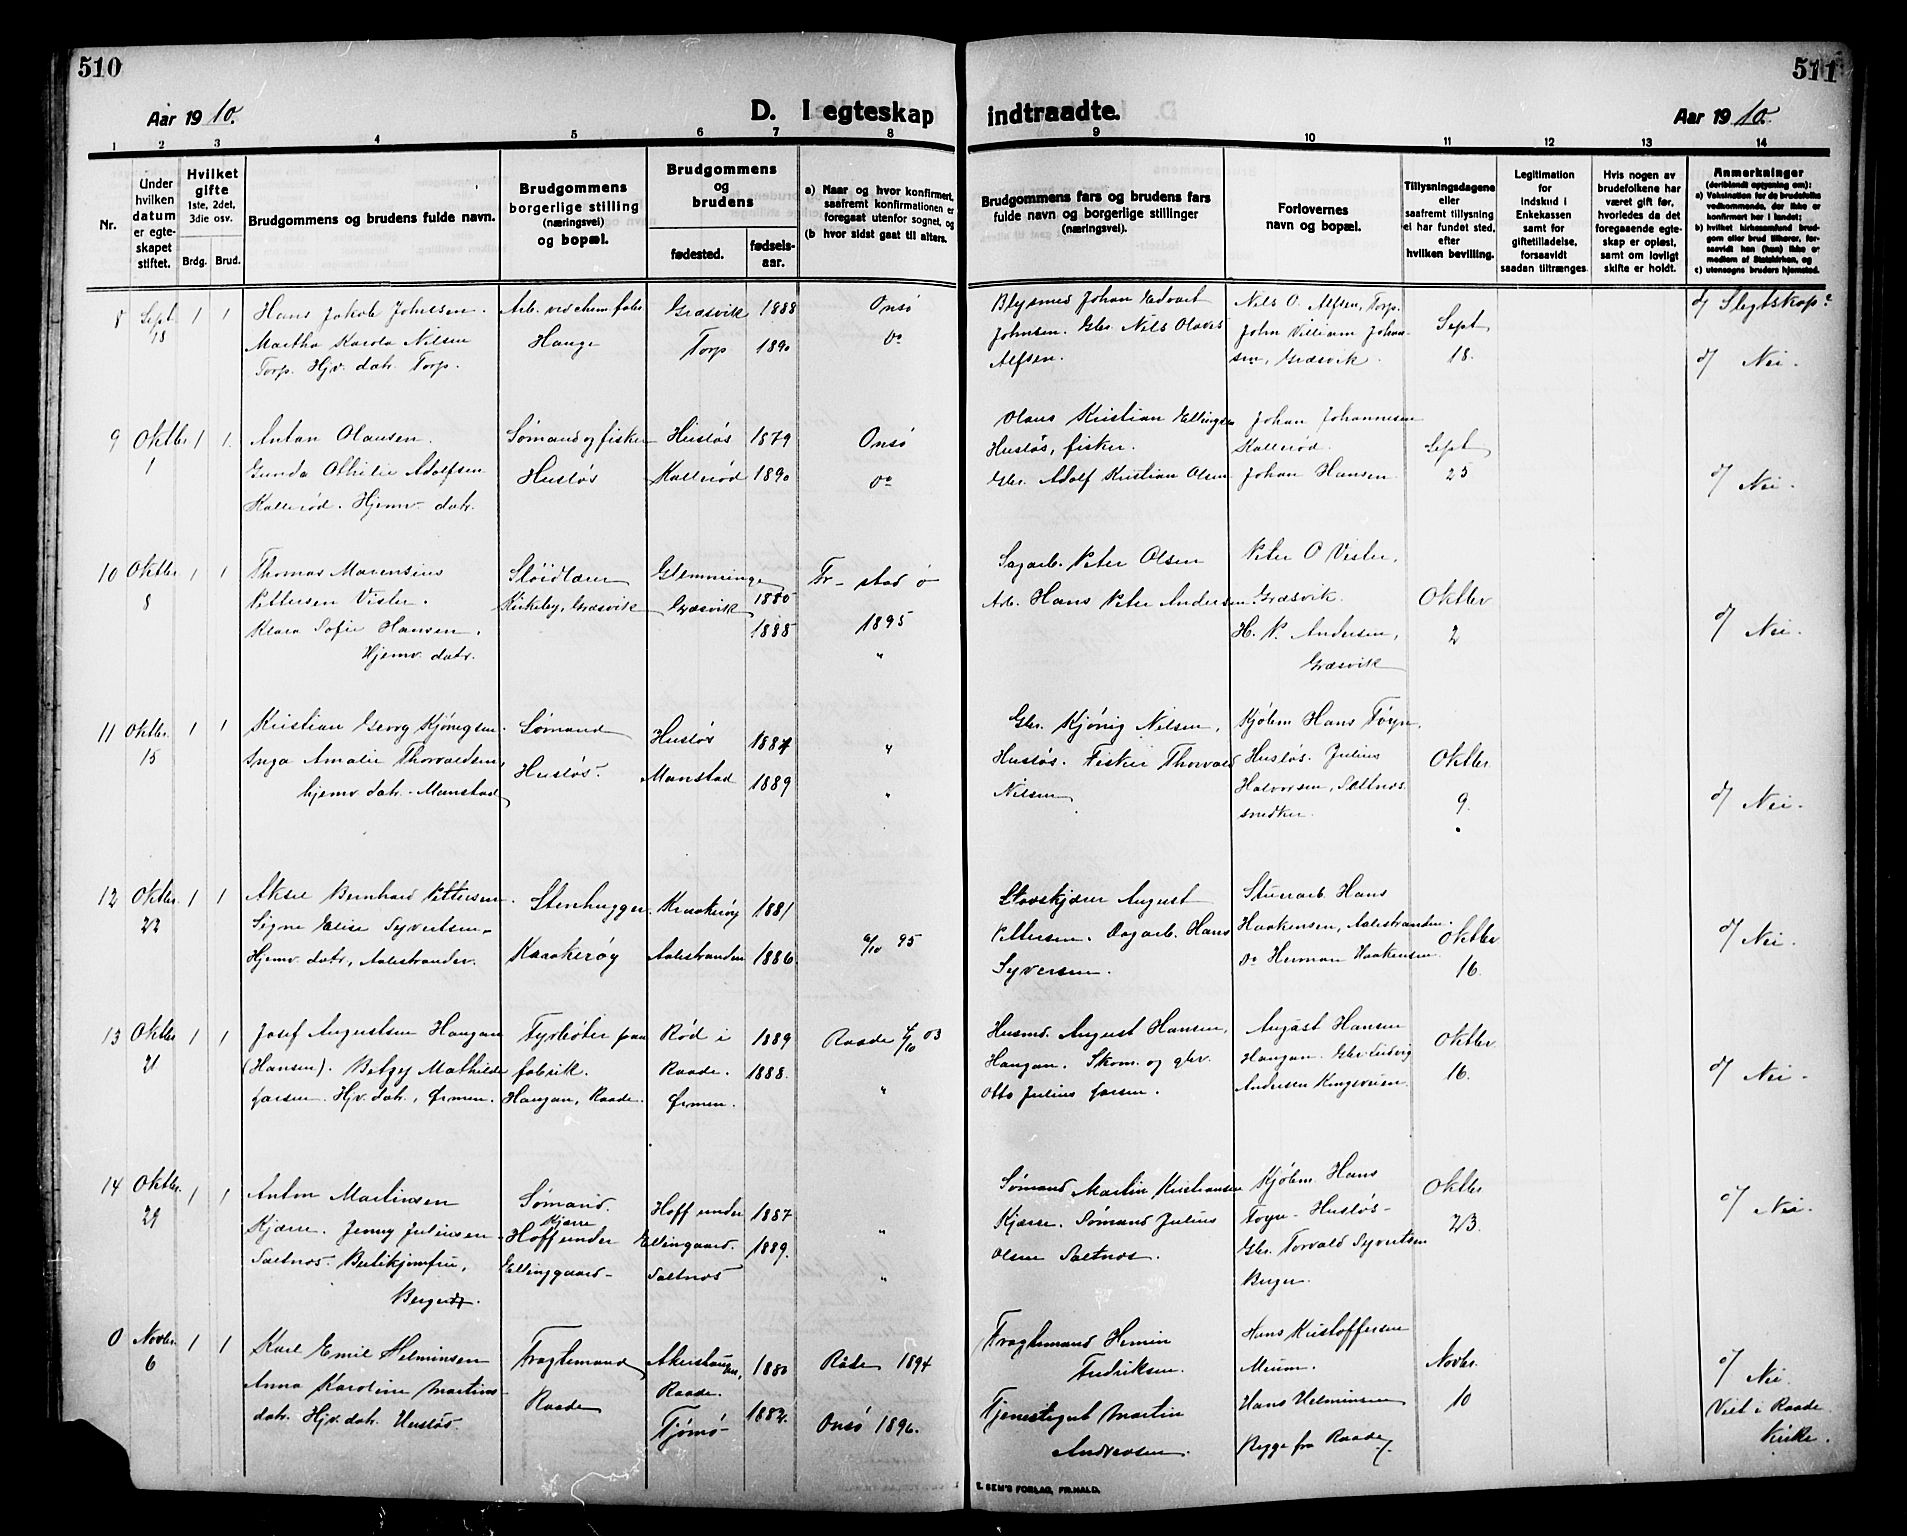 510
511
Aar 1910.
D. I egteskap indtraadte.
Aar 1910.
1 2 3 4 5 6 7 8 9 10 11 12 13 14
Nr.
Under hvilken datum er egteskapet stiftet.
Hvilket gifte 1ste, 2det, 3die osv.
Brdg. Brud.
Brudgommens og brudens fulde navn.
Brudgommens borgerlige stilling (næringsvei) og bopæl.
Brudgommens og brudens
fødested.
fødselsaar.
a) Naar og hvor konfirmert, saafremt konfirmationen er foregaat utenfor sognet, og
(b hvor sidst gaat til alters.
Brudgommens fars og brudens fars fulde navn og borgerlige stillinger (næringsvei).
Forlovernes navn og bopæl.
Tillysningsdagene eller saafremt tillysning ei har fundet sted, efter hvilken bevilling.
Legitimation for indskud i Enkekassen samt for giftetilladelse, forsaavidt saadan tiltrænges
Hvis nogen av brudefolkene har været gift før, hvorledes da det foregaaende egteskap er opløst, samt om lovligt skifte er holdt.
Anmerkninger
(deriblandt opgyening om):
a) Vaksination for de brudefolks vedkommende, der ikke er konfirmert her i landet;
b) hvilket kirkesamfund brudgom eller brud tilhører, forsaavidt han (hun) ikke er medlem af Statskirken, og
c) utensogns bruders hjemsted.
8 Sept 18 1 1
Hans Jakob Johnsen.
Martha Karola Nilsen
Torp. Hjv. datr. Torp.
Arb. ved chem. fabr.
Hauge
Græsvik 1888
Torp 1890
Onsø
do
Johan Edvart
Johnsen. Gbr. Nils Olaves
Alfsen.
Nils O. Alfsen, Torp.
John Villiam Johansen, Græsvik.
Sept
18.
d/ Slegtskap?
d/ Nei.
9 Oktbr 1 1 1.
Anton Olausen.
Gunda Othilie Adolfsen
Kallerød. Hjemv. datr.
Sømand og fisker
Husløs
Husløs 1879
Kallerød 1890
Onsø
do
Olaus Kristian Ellingsen
Husløs, fisker.
Gbr. Adolf Kristian Olsen
Johan Johannesen
Kallerød.
Johan Hansen.
Sept
25
d/ Nei.
10 Oktbr 8 1 1
Thomas Marensius
Pettersen Vister.
Klara Sofie Hansen.
Hjemv. datr.
Sløidlærer
Kirkeby, Græsvik
Glemminge
1880
Græsvik
1888
Fr-stad ø
1895
"
Sagarb. Peter Olsen
Arb. Hans Peter Andersen
Peter O Vister,
Græsvik.
H. P. Andersen,
Græsvik
Oktbr
2
d/ Nei.
11 Oktbr. 15 1 1
Kristian Georg Kjønigsen.
Inga Amalie Thorvaldsen,
hjemv. datr. Manstad
Sømand
Husløs.
Husløs 1887
Manstad 1889
"
"
Gbr. Kjønig Nilsen,
Husløs. Fisker Thorvald
Nilsen
Kjøbm Hans Tøyn,
Husløs. Julius
Halvorsen, Saltnes
snedker.
Oktbr.
9.
d/ Nei.
12 Oktbr. 22 1 1
Aksel Bernhard Pettersen
Signe Elise Syvertsen.
Hjemv. datr, Aalestranden.
Stenhugger.
Kraakerøy
Kraakerøy 1881
Aalestranden 1886.
6/10 95
August
Pettersen. Dagarb. Hans
Syversen.
Stenarb. Hans
Haakensen, Aalestranden.
Do Herman Haakensen
Oktbr
16.
d/ Nei.
13 Oktbr 21 1 1
Josef Augustsen Haugan
(Hansen). Betzy Mathilde
Larsen. Hjv. datr, Ørmen.
Fyrbøter paa
fabrik.
Haugan, Raade.
Rød i 1889
Raade. 1888.
Ørmen.
Raade 4/10 03
"
Husmd. August Hansen,
Haugan. Skom. og gbr.
Otto Julius Larsen.
August Hansen
Haugan. Gbr. Ludvig
Andersen Kingsveien.
Oktbr.
16.
d/ Nei.
14 Oktbr. 29 1 1
Anton Martinsen
Kjærre. Jenny Juliusen
Saltnes. Butikjomfru,
Berger.
Sømand.
Kjærre
Hoff under
Ellinggaard-
Hoff under 1887
Ellingaard. 1889.
Saltnes
"
"
Sømand Martin Kristiansen
Kjærre. Sømand Julius
Olsen Saltnes.
Kjøbm. Hans
Tøyn- Husløs-
Gbr. Torvald Syvertsen
Berger.
Oktbr
23.
d/ Nei.
0 Novbr. 6 1 1
Karl Emil Helminsen
Anna Karoline Martins-
datr. Hjv. datr. Husløs.
Fragtemand
Raade
Akershaugen, 1880
Raade.
Tjømø 1882.
Råde 1894
Onsø 1896.
Fragtemand Hemin
Fredriksen.
Tjenestegut Martin
Andersen.
Hans Kristoffersen
Meum.
Hans Helminsen
Rygge fra Raade
Novbr.
10
d/ Nei
Viet i Raade
Kirke.
E. SEM'S FORLAG, FR.HALD.